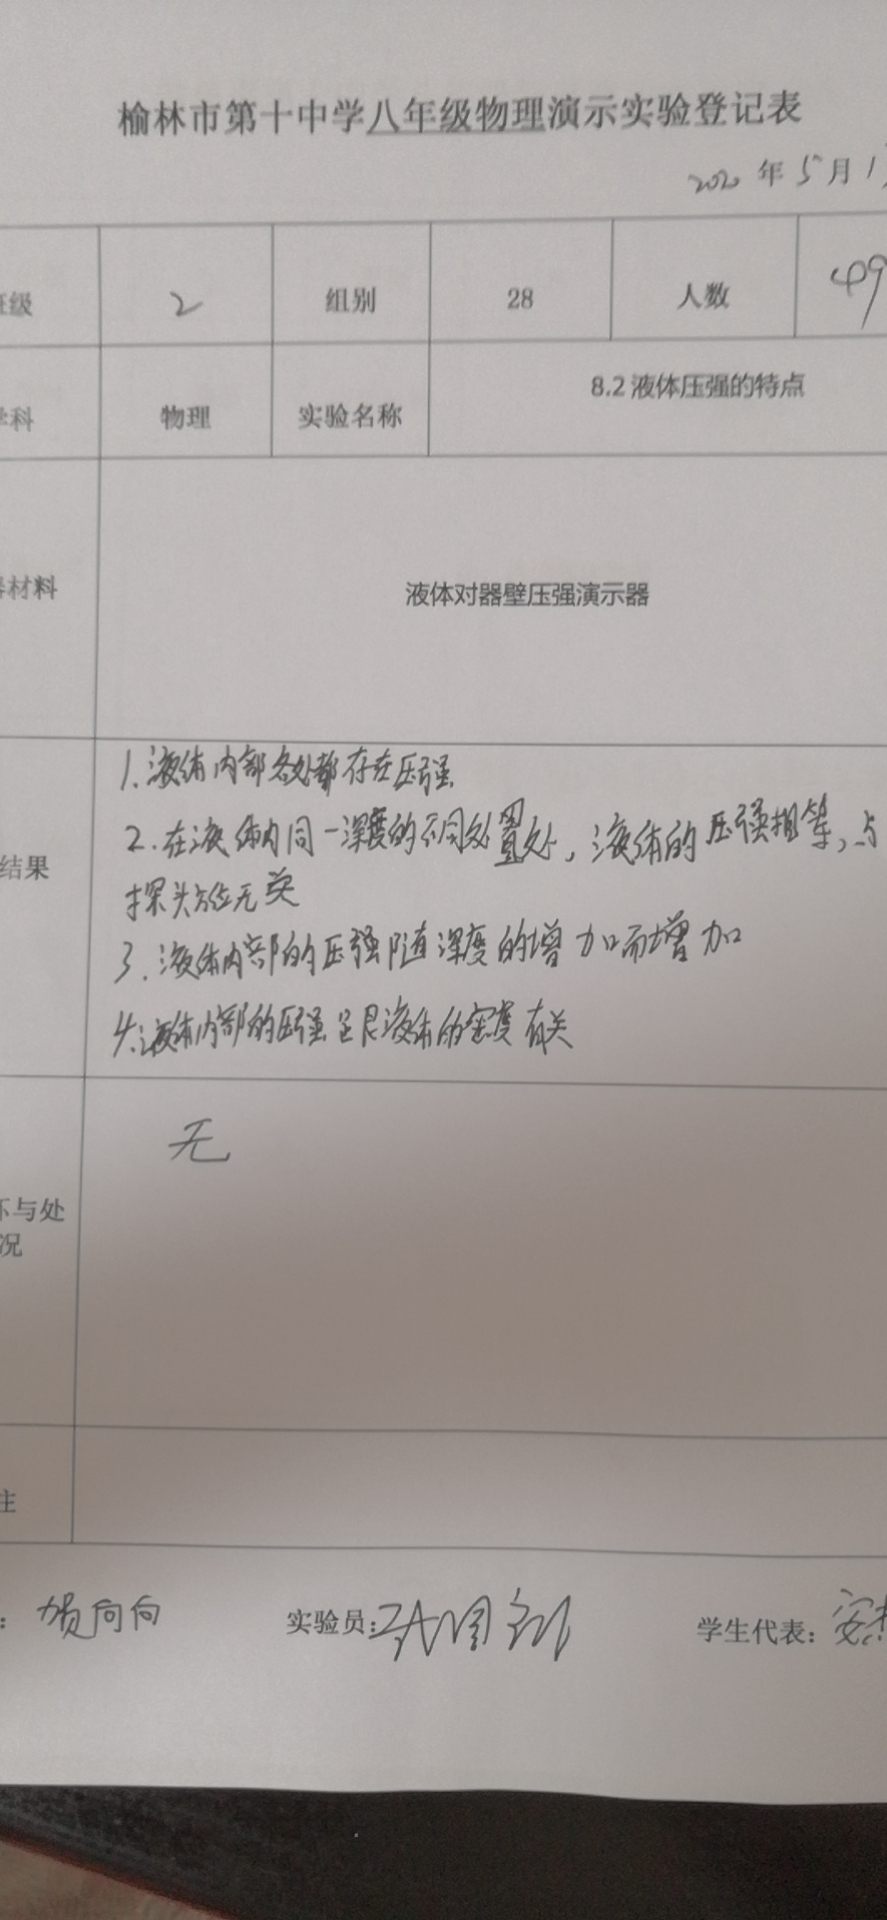 榆林市第十中学八年级物理演示实验登记表
2020 年 5 月 1
班级 2 组别 28 人数 49
学科 物理 实验名称 8.2 液体压强的特点
材料 液体对器壁压强演示器
1.液体内部各处都存在压强
2.在液体内同一深度的不同处置处,液体的压强相等,与
结果
探头方位无关
3.液体内部的压强随深度的增加而增加
4.液体内部的压强足艮液体的密度有关
无
坏与处
况
注
: 贺向向 实验员: 学生代表: 安